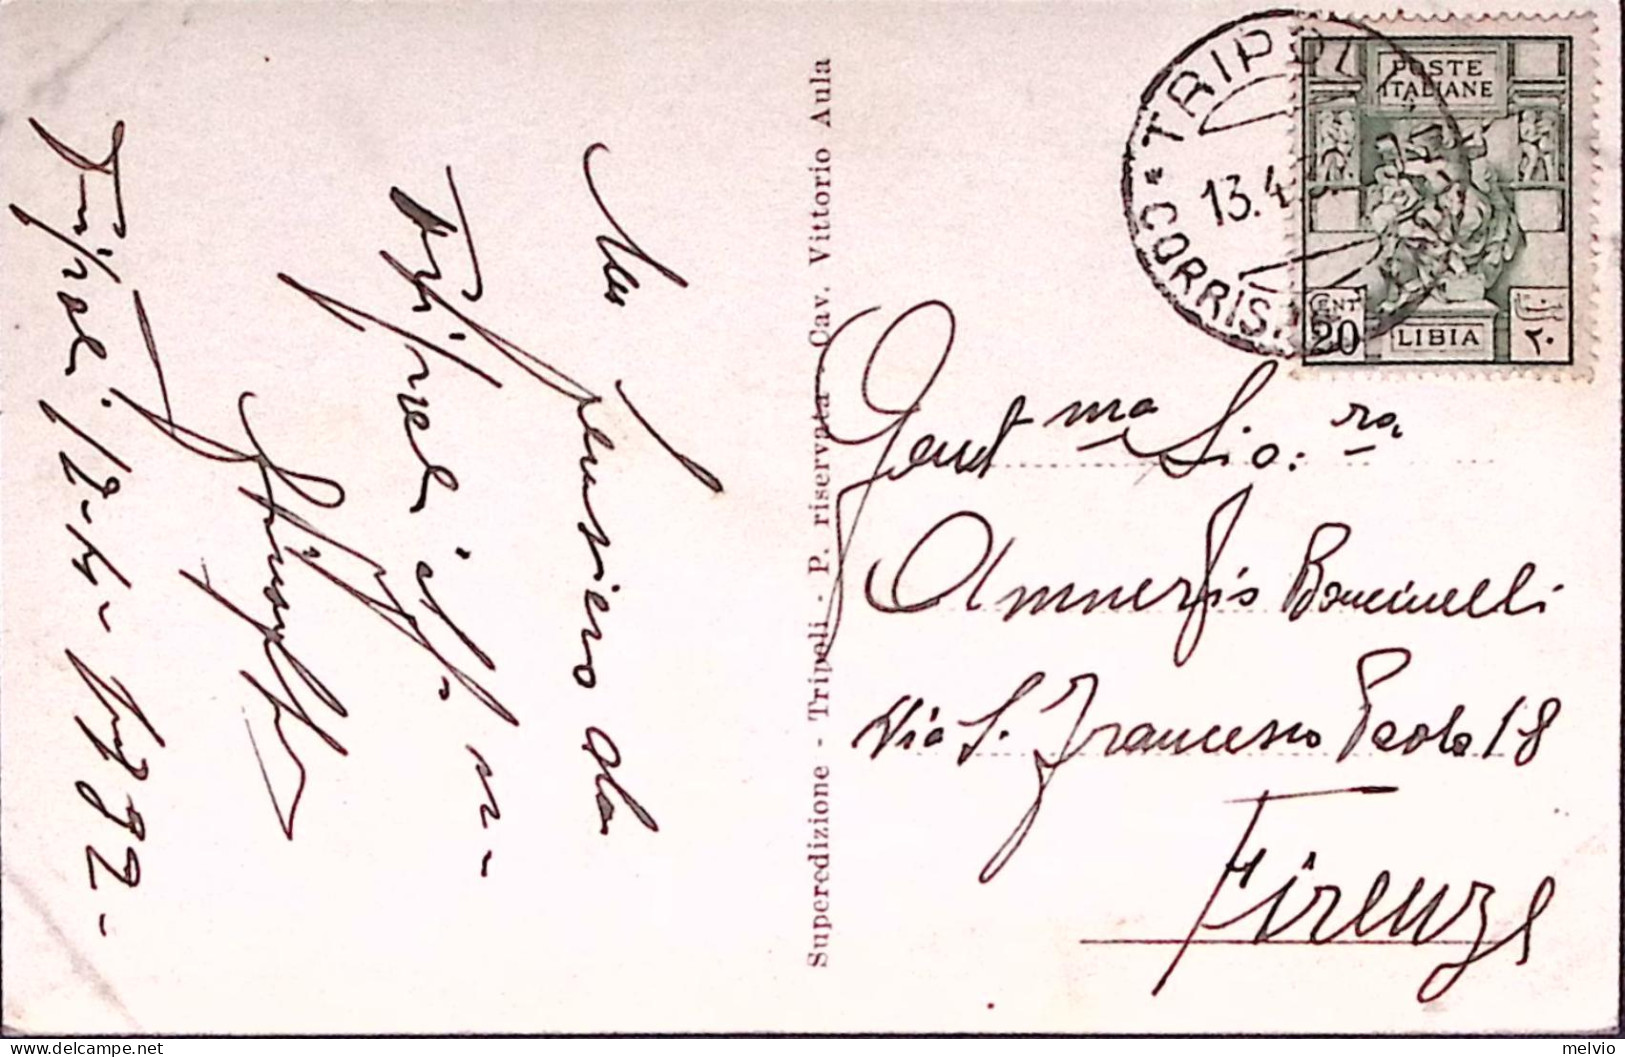 Un pensiero da
Tripoli
Tripoli, 12-4-1932-
Superedizione - Tripoli - P. riservata - Cav. Vittorio Aula
TRIPOLI
13.4.
CORRISP
POSTE
ITALIANE
CENT
20
LIBIA
٢٠
Gent.ma Sig.ra
Amneris Boncinelli
Via S. Francesco Paola 18
Firenze
melvio